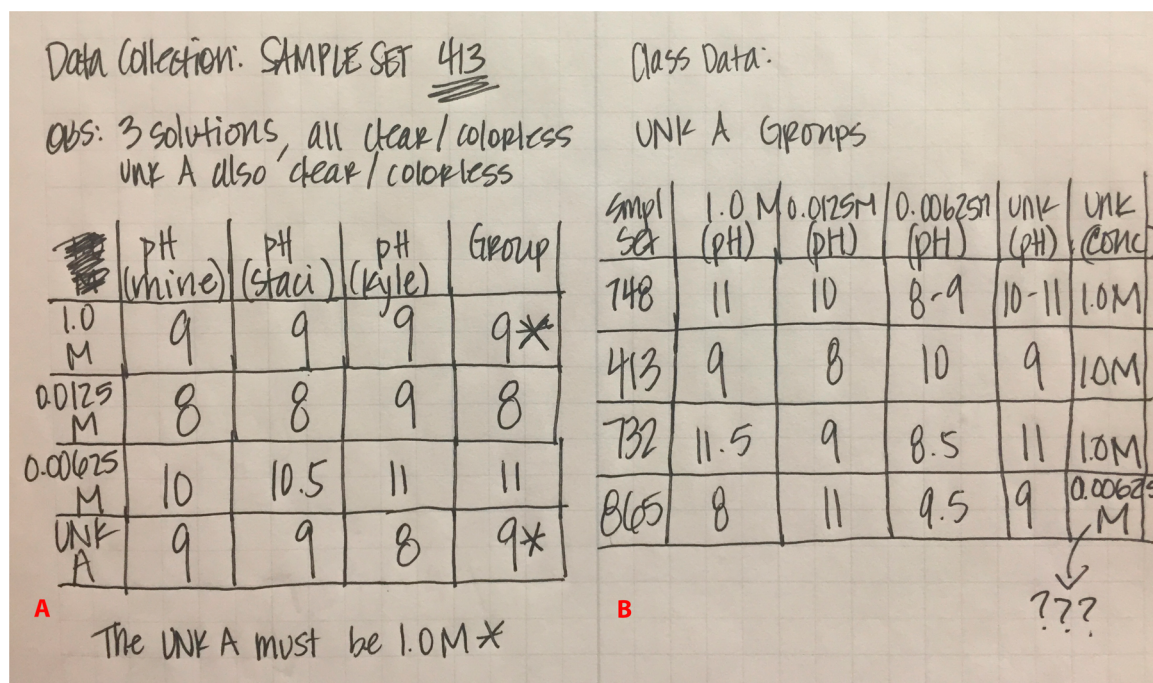 Data Collection: SAMPLE SET 413
Obs: 3 solutions, all clear/colorless
Unk A also clear/colorless
pH (mine) pH (staci) pH (Kyle) Group
1.0 M 9 9 9 9*
0.0125 M 8 8 9 8
0.00625 M 10 10.5 11 11
UNK A 9 9 8 9*
A
The UNK A must be 1.0M *
Class Data:
UNK A Groups
Smpl Set 1.0 M (pH) 0.0125M (pH) 0.00625M (pH) unk (pH) unk (conc
748 11 10 8-9 10-11 1.0M
413 9 8 10 9 1.0M
732 11.5 9 8.5 11 1.0M
865 8 11 9.5 9 0.00625 M
B
???